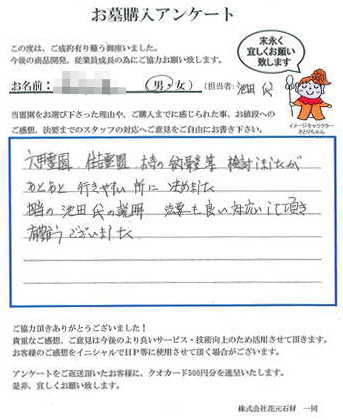 お墓購入アンケート
この度は、ご成約有り難う御座いました。
今後の商品開発、従業員成長の為にご協力お願い致します。
末永く
宜しくお願い
致します
お名前：
(男・女)
(担当者: 池田 代
イメージキャラクター
さとりちゃん
当霊園をお選び下さった理由や、ご購入までに感じられた事、お値段への
ご感想、法要までのスタッフの対応へご意見をご自由にお書き下さい。
六甲霊園、住吉霊園、 検討しましたが
あとあと 行きやすい所に決めました
担当の池田代の説明 法要も良い対応して頂き
有難うございました
ご協力頂きありがとうございました！
貴重なご感想、ご意見は今後のより良いサービス・技術向上のため活用させて頂きます。
お客様のご感想をイニシャルでＨＰ等に使用させて頂く場合がございます。
アンケートをご返送頂いたお客様に、クオカード500円分を進呈いたします。
是非、宜しくお願い致します。
株式会社花元石材 一同